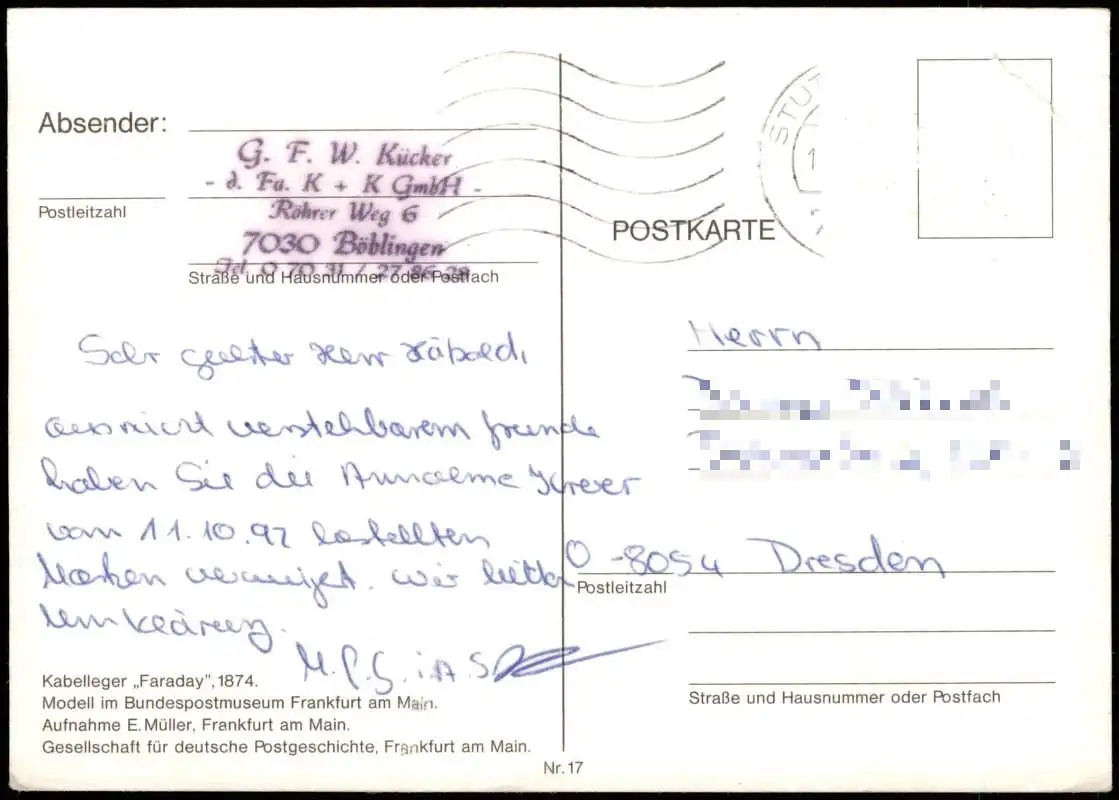 Absender:
G. F. W. Kücker
- d. Fa. K + K GmbH -
Röhrer Weg 6
7030 Böblingen
Tel. 0 70 31 / 27 86 28
Postleitzahl
Straße und Hausnummer oder Postfach
STUT
1
POSTKARTE
Sehr geehrter Herr
aus nicht verstehbarem
haben Sie die Annahme Ihrer
vom 11.10.92 bestellten
Marken verweigert. Wir bitten
um
M.f.G. i.A. S
Kabelleger „Faraday", 1874.
Modell im Bundespostmuseum Frankfurt am Main.
Aufnahme E. Müller, Frankfurt am Main.
Gesellschaft für deutsche Postgeschichte, Frankfurt am Main.
Nr. 17
Herrn
O-8054 Dresden
Postleitzahl
Straße und Hausnummer oder Postfach